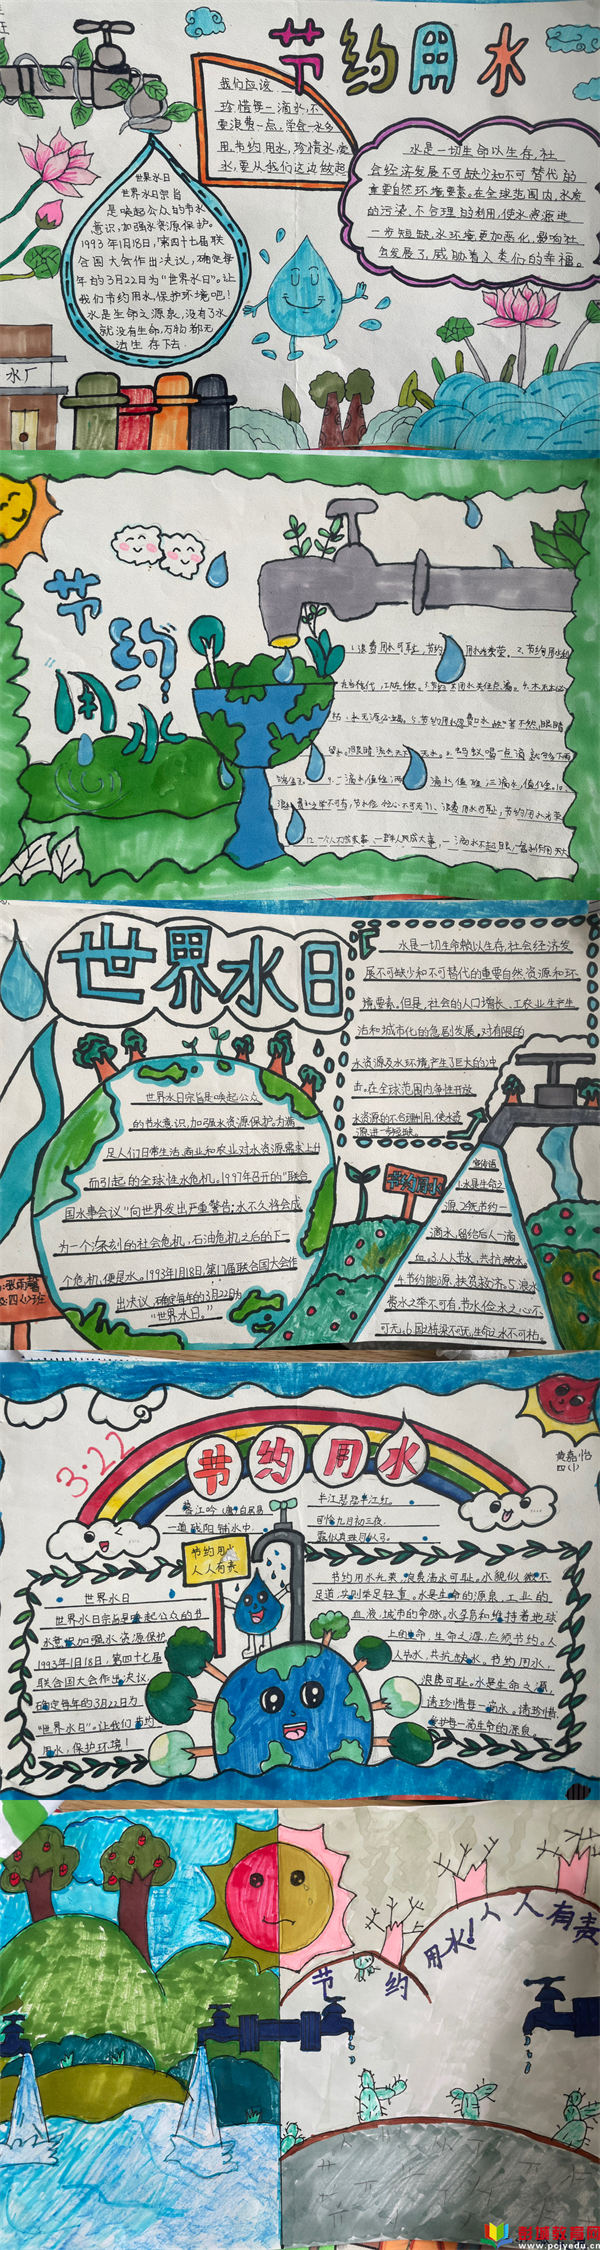 节约用水
我们应该
珍惜每一滴水,不
要浪费一点,学会一水多
用,节约用水,珍惜水,爱
水,要从我们这边做起
水是一切生命以生存,社
会经济发展不可缺少和不可替代的
重要自然环境要素。在全球范围内,水质
的污染,不合理的利用,使水资源进
一步短缺,水环境更加恶化,影响社
会发展了,威胁着人类们的幸福。
世界水日
世界水日宗旨
是唤起公众的节水
意识,加强水资源保护。
1993年1月18日,第四十七届联
合国大会作出决议,确定每
年的3月22日为“世界水日”。让
我们节约用水,保护环境吧!
水是生命之源泉,没有了水
就没有生命,万物都无
法生存下去.
水厂
节约用水
1.浪费用水可耻,节约用水光荣.2.节约用水利
世界水日
水是一切生命赖以生存,社会经济发
展不可缺少和不可替代的重要自然资源和环
境要素。但是,社会的人口增长、工农业生产生
活和城市化的急剧发展,对有限的
水资源及水环境产生了巨大的冲
击。在全球范围内
水资源的不合理利用,使水资
源进一步短缺。
世界水日宗旨是唤起公众
的节水意识,加强水资源保护。为满
足人们日常生活、商业和农业对水资源需求上升
而引起的全球性水危机。1997年召开的“联合
国水事会议”向世界发出严重警告:水不久将会成
为一个深刻的社会危机,石油危机之后的下一
个危机,便是水。1993年1月18日,第17届联合国大会作
出决议,确定每年的3月22日为
“世界水日。”
节约用水
宣传语
1.水是生命之
源。2.我节约一
滴水,留给后人一滴
血。3.人人节水,共抗缺水。
4.节约能源,扶贫救济。5.浪水
费水之举不可有,节水俭水之心不
可无。6.国之栋梁不可无,生命之水不可枯。
四(1)班
3.22
节约用水
黄嘉怡
四(1)
暮江吟(唐)白居易
一道残阳铺水中,
长江瑟瑟半江红。
可怜九月初三夜,
露似真珠月似弓。
节约用水
人人有责
世界水日
世界水日宗旨是唤起公众的节
水意识,加强水资源保护。
1993年1月18日,第四十七届
联合国大会作出决议,
确定每年的3月22日为
“世界水日”。让我们节约
用水,保护环境!
节约用水光荣,浪费滴水可耻。水貌似微不
足道,实则举足轻重。水是生命的源泉,工业的
血液,城市的命脉。水孕育和维持着地球
上的生命,生命之源,应须节约。人
人节水,共抗缺水。节约用水,
浪费可耻。水是生命之源,
请珍惜每一滴水。请珍惜,
爱护每一滴生命的源泉
节约用水!人人有责
www.pcjyedu.cn